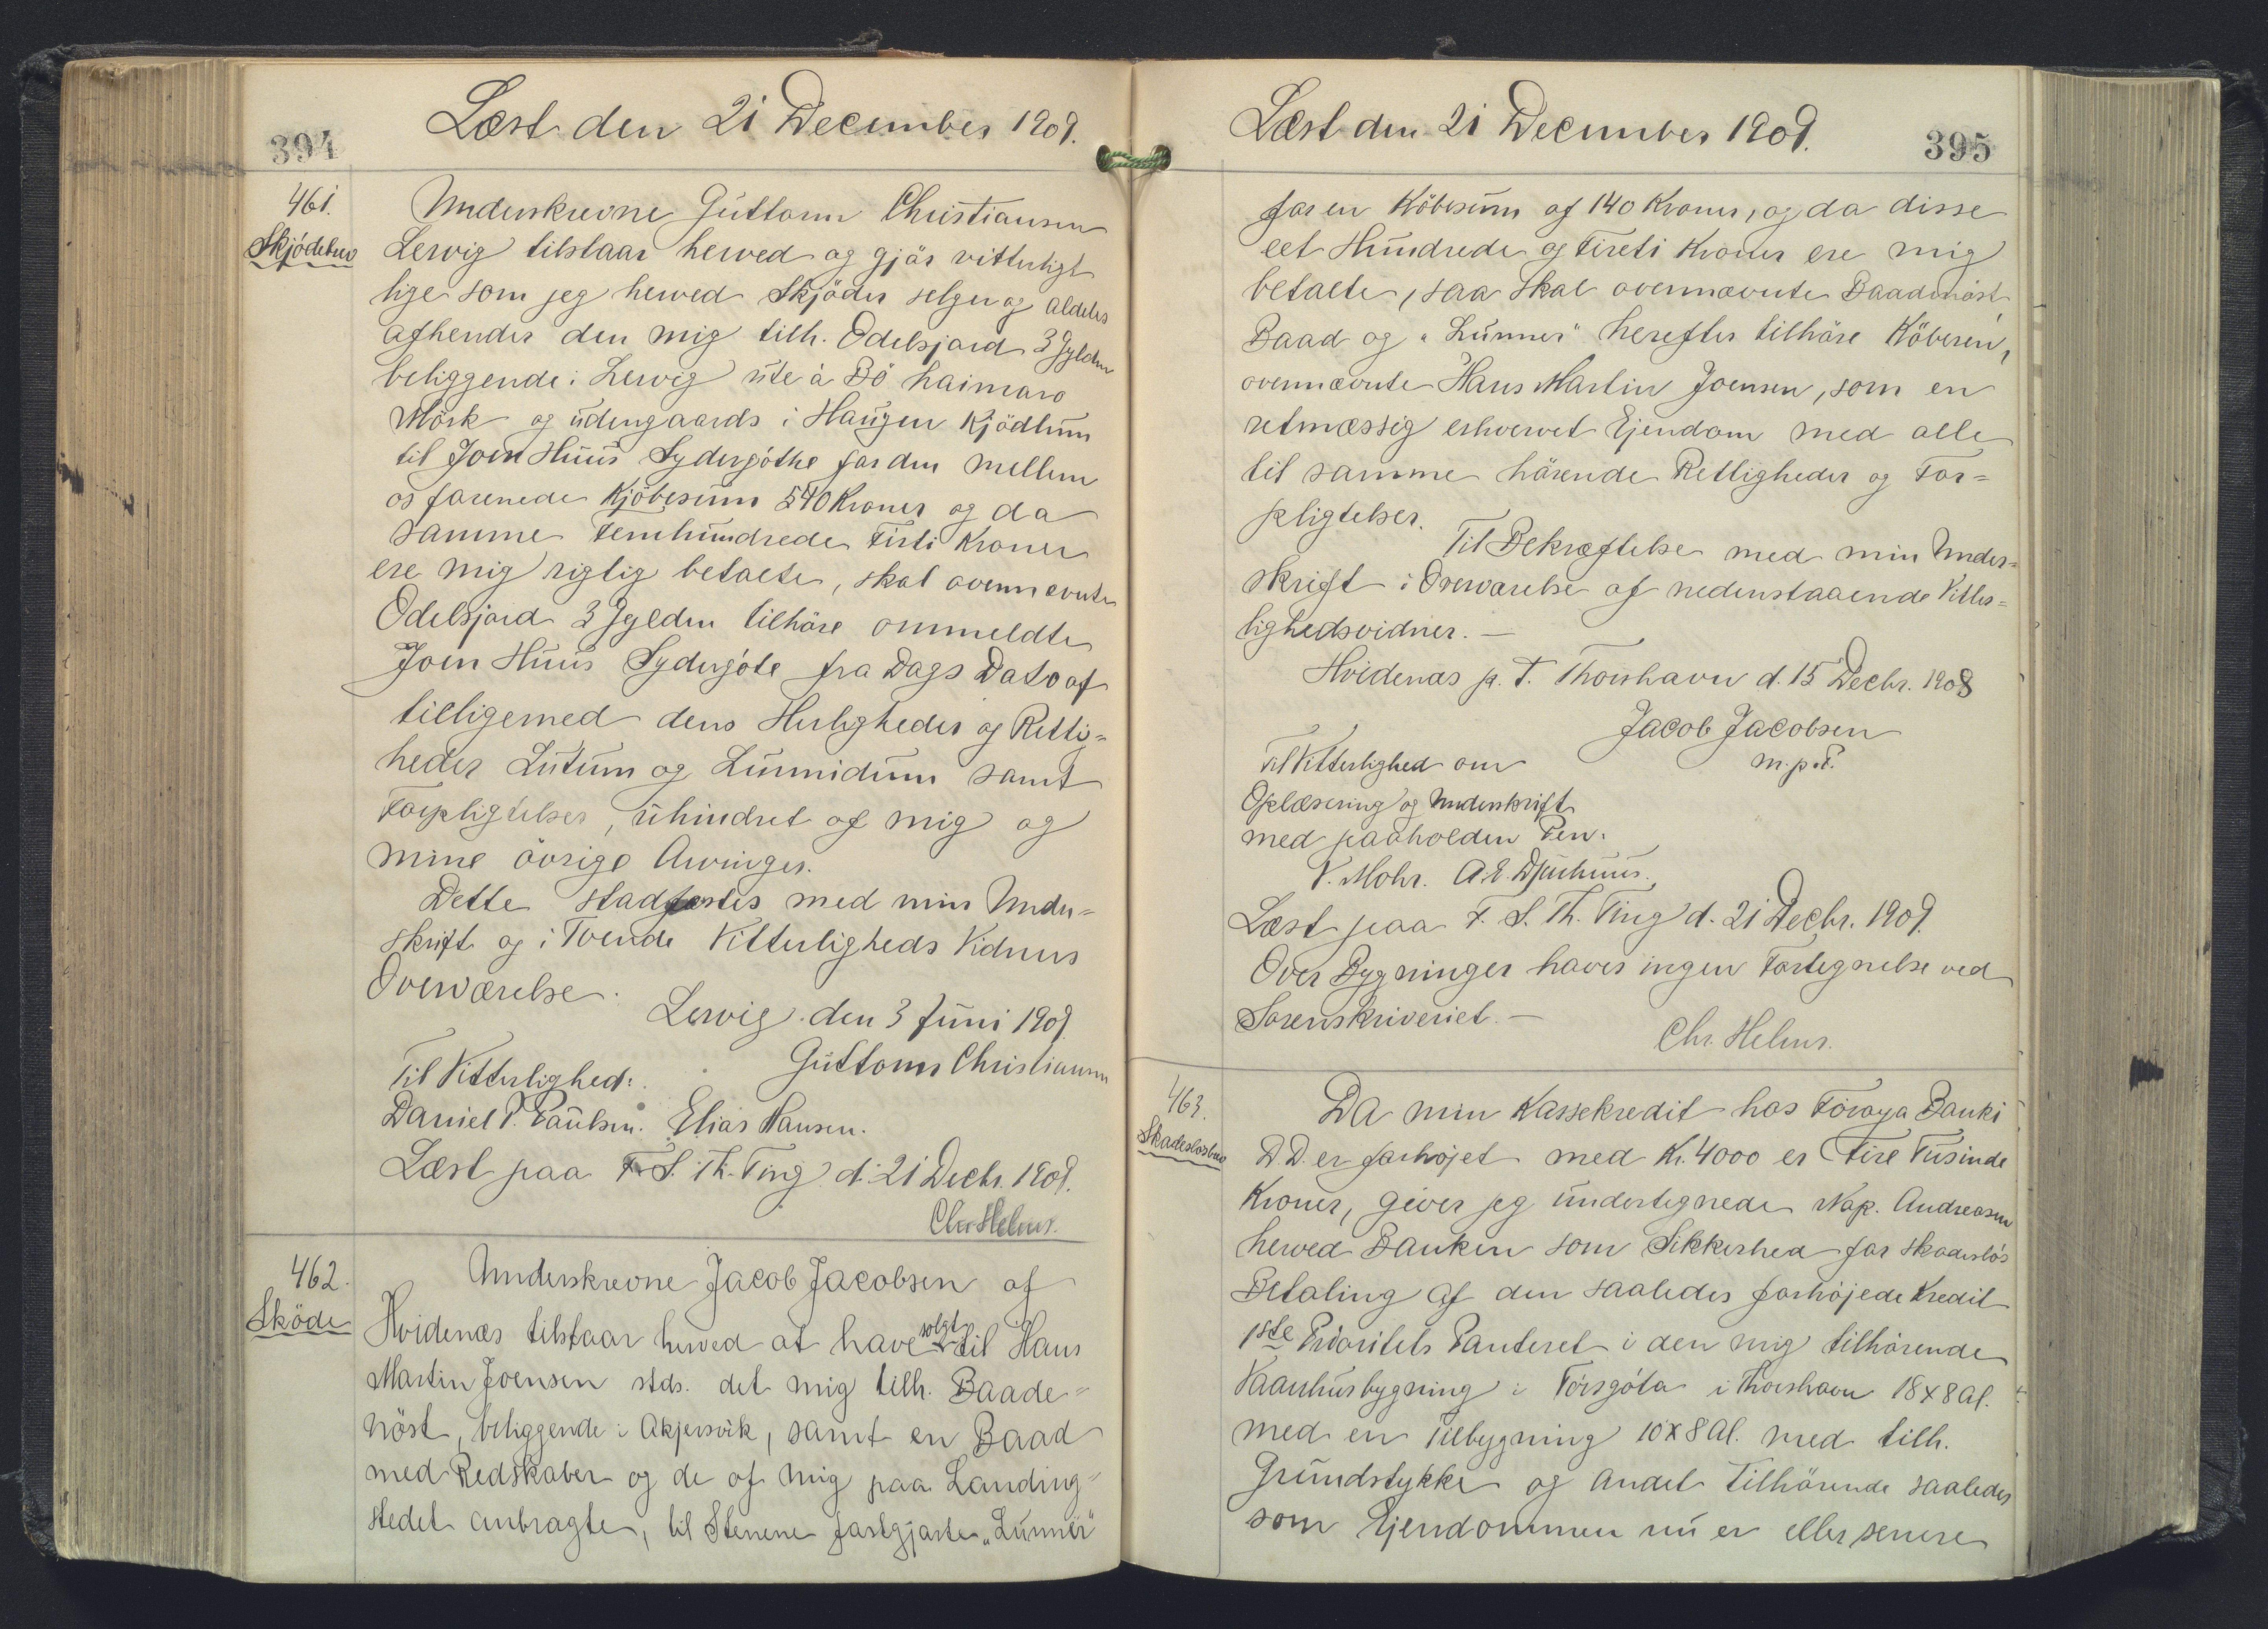 394
Læst den 21 December 1909.
461.
Skjödebrev
Underskrevne Guttorm Christiansen
Lervig tilstaar herved og gjör vitterligt
lige som jeg herved Skjöder selger og aldeles
afhender den mig tilh. Odelsjord 3 Gylden
beliggende i Lervig úte á Bö haimaro
Mörk og udengaards i Haugen Kjödlum
til Join Huus Sydergöthe for den mellem
os forenede Kjöbesum 540 Kroner og da
samme Femhundrede Firti Kroner
ere mig rigtig betalte, skal ovennevnte
Odelsjord 3 Gylden tilhöre ommeldte
Join Huus Sydergöte fra Dags Dato af
tilligemed dens Herligheder og Rettig=
heder Lutum og Lunnidum samt
Forpligtelser, uhindret af mig og
mine övrige Arvinger.
Dette stadfæstes med min Under=
skrift og i Tvende Vitterligheds Vidners
Overværelse.
Lervig den 3 Juni 1909.
Guttorm Christiansen
Til Vitterlighed:
Daniel P. Paulsen. Elias Hansen.
Læst paa F. S. Th. Ting d. 21 Decbr. 1909.
Chr. Helms.
462.
Sköde
Underskrevne Jacob Jacobsen af
Hvidenæs tilstaar herved at have solgt til Hans
Martin Joensen stds. det mig tilh. Baade=
nöst, beliggende i Akjersvik, samt en Baad
med Redskaber og de af mig paa Landing=
stedet anbragte, til Stenene fastgjorte „Lunner"
Læst den 21 December 1909.
395
for en Köbesum af 140 Kroner, og da disse
eet Hundrede og Fireti Kroner ere mig
betalte, saa skal ovennævnte Baadenöst,
Baad og „Lunner" herefter tilhöre Köberen,
ovennævnte Hans Martin Joensen, som en
retmæssig erhvervet Ejendom med alle
til samme hörende Rettigheder og For=
pligtelser.
Til Bekræftelse med min Under=
skrift i Overværelse af nedenstaaende Vitter=
lighedsvidner. —
Hvidenæs p. T. Thorshavn d. 15 Decbr. 1908
Jacob Jacobsen
m. p. P.
Til Vitterlighed om
Oplæsning og Underskrift
med paaholden Pen.
V. Mohr. A. E. Djurhuus.
Læst paa F. S. Th. Ting d. 21 Decbr. 1909.
Over Bygninger haves ingen Fortegnelse ved
Sorenskriveriet. —
Chr. Helms.
463.
Skadeslosbrev
Da min Kassekredit hos Föroya Banki
D. D. er forhöjet med Kr. 4000 er Fire Tusinde
Kroner, giver jeg undertegnede Nap. Andreasen
herved Banken som Sikkerhed for skadeslös
Betaling af den saaledes forhöjede Kredit
1ste Prioritets Panteret i den mig tilhörende
Vaanhusbygning i Törsgöta i Thorshavn 18 x 8 Al.
med en Tilbygning 10 x 8 Al. med tilh.
Grundstykke og andet Tilhörende saaledes
som Ejendommen nu er eller senere